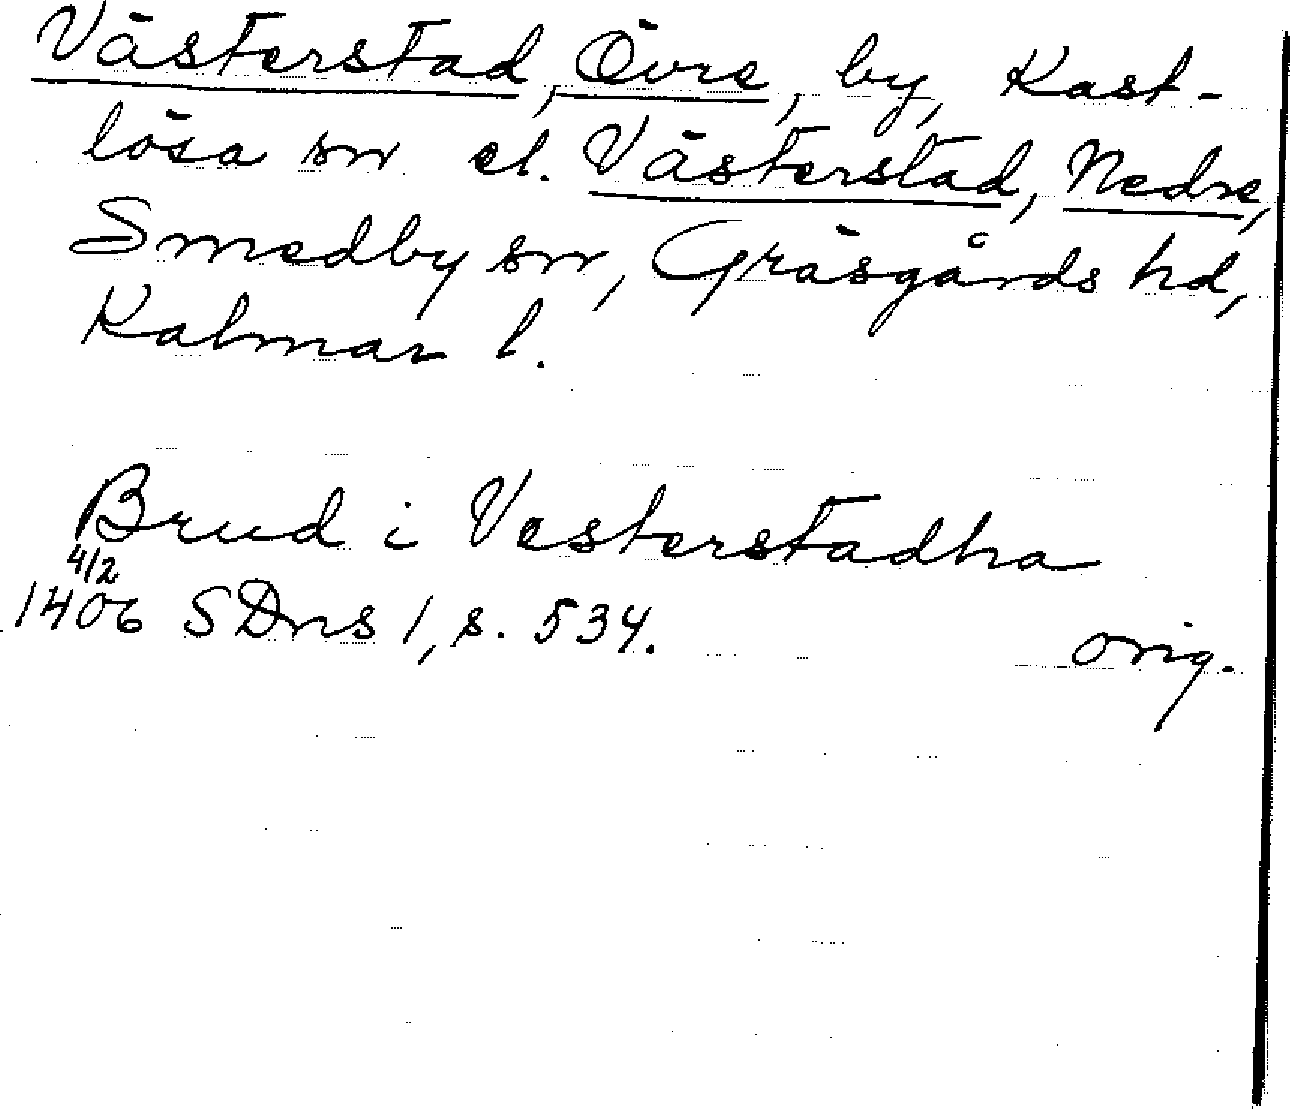 Västerstad, Övre, by, Kast-
lösa sn el. Västerstad, Nedre,
Smedby sn, Gräsgårds hd,
Kalmar l.
Brud i Vesterstadha
4/2
1406 SDns 1, s. 534.
orig.